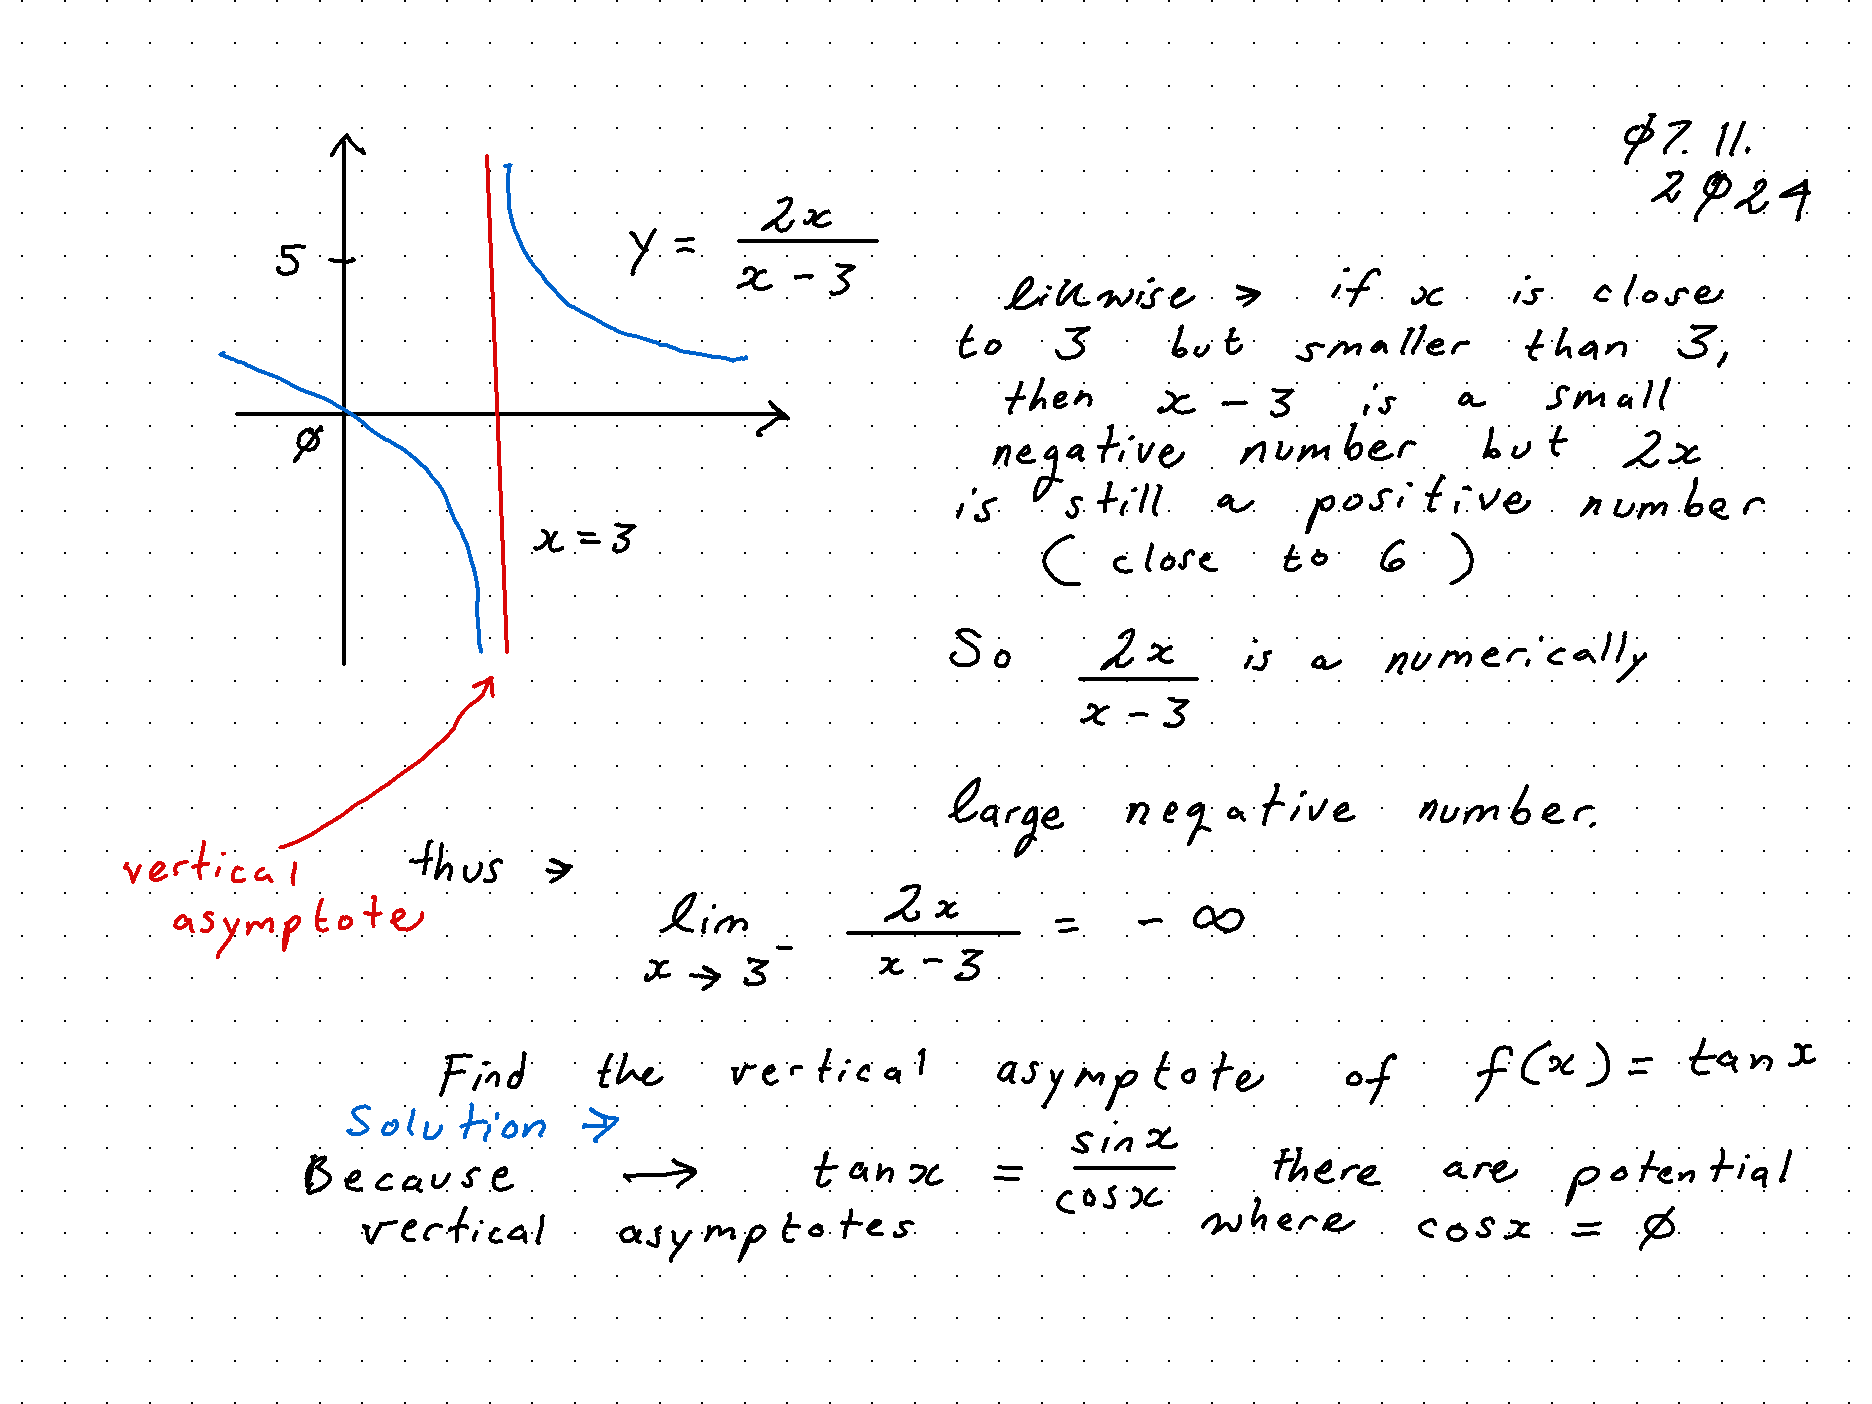 Ø7. 11.
2Ø24
5
y = 2x / x - 3
Ø
x = 3
likwise → if x is close
to 3 but smaller than 3,
then x - 3 is a small
negative number but 2x
is still a positive number
( close to 6 )
So 2x / x - 3 is a numerically
large negative number.
vertical
asymptote
thus →
lim x → 3⁻ 2x / x - 3 = - ∞
Find the vertical asymptote of f(x) = tan x
Solution →
Because → tan x = sin x / cos x there are potential
vertical asymptotes where cos x = Ø